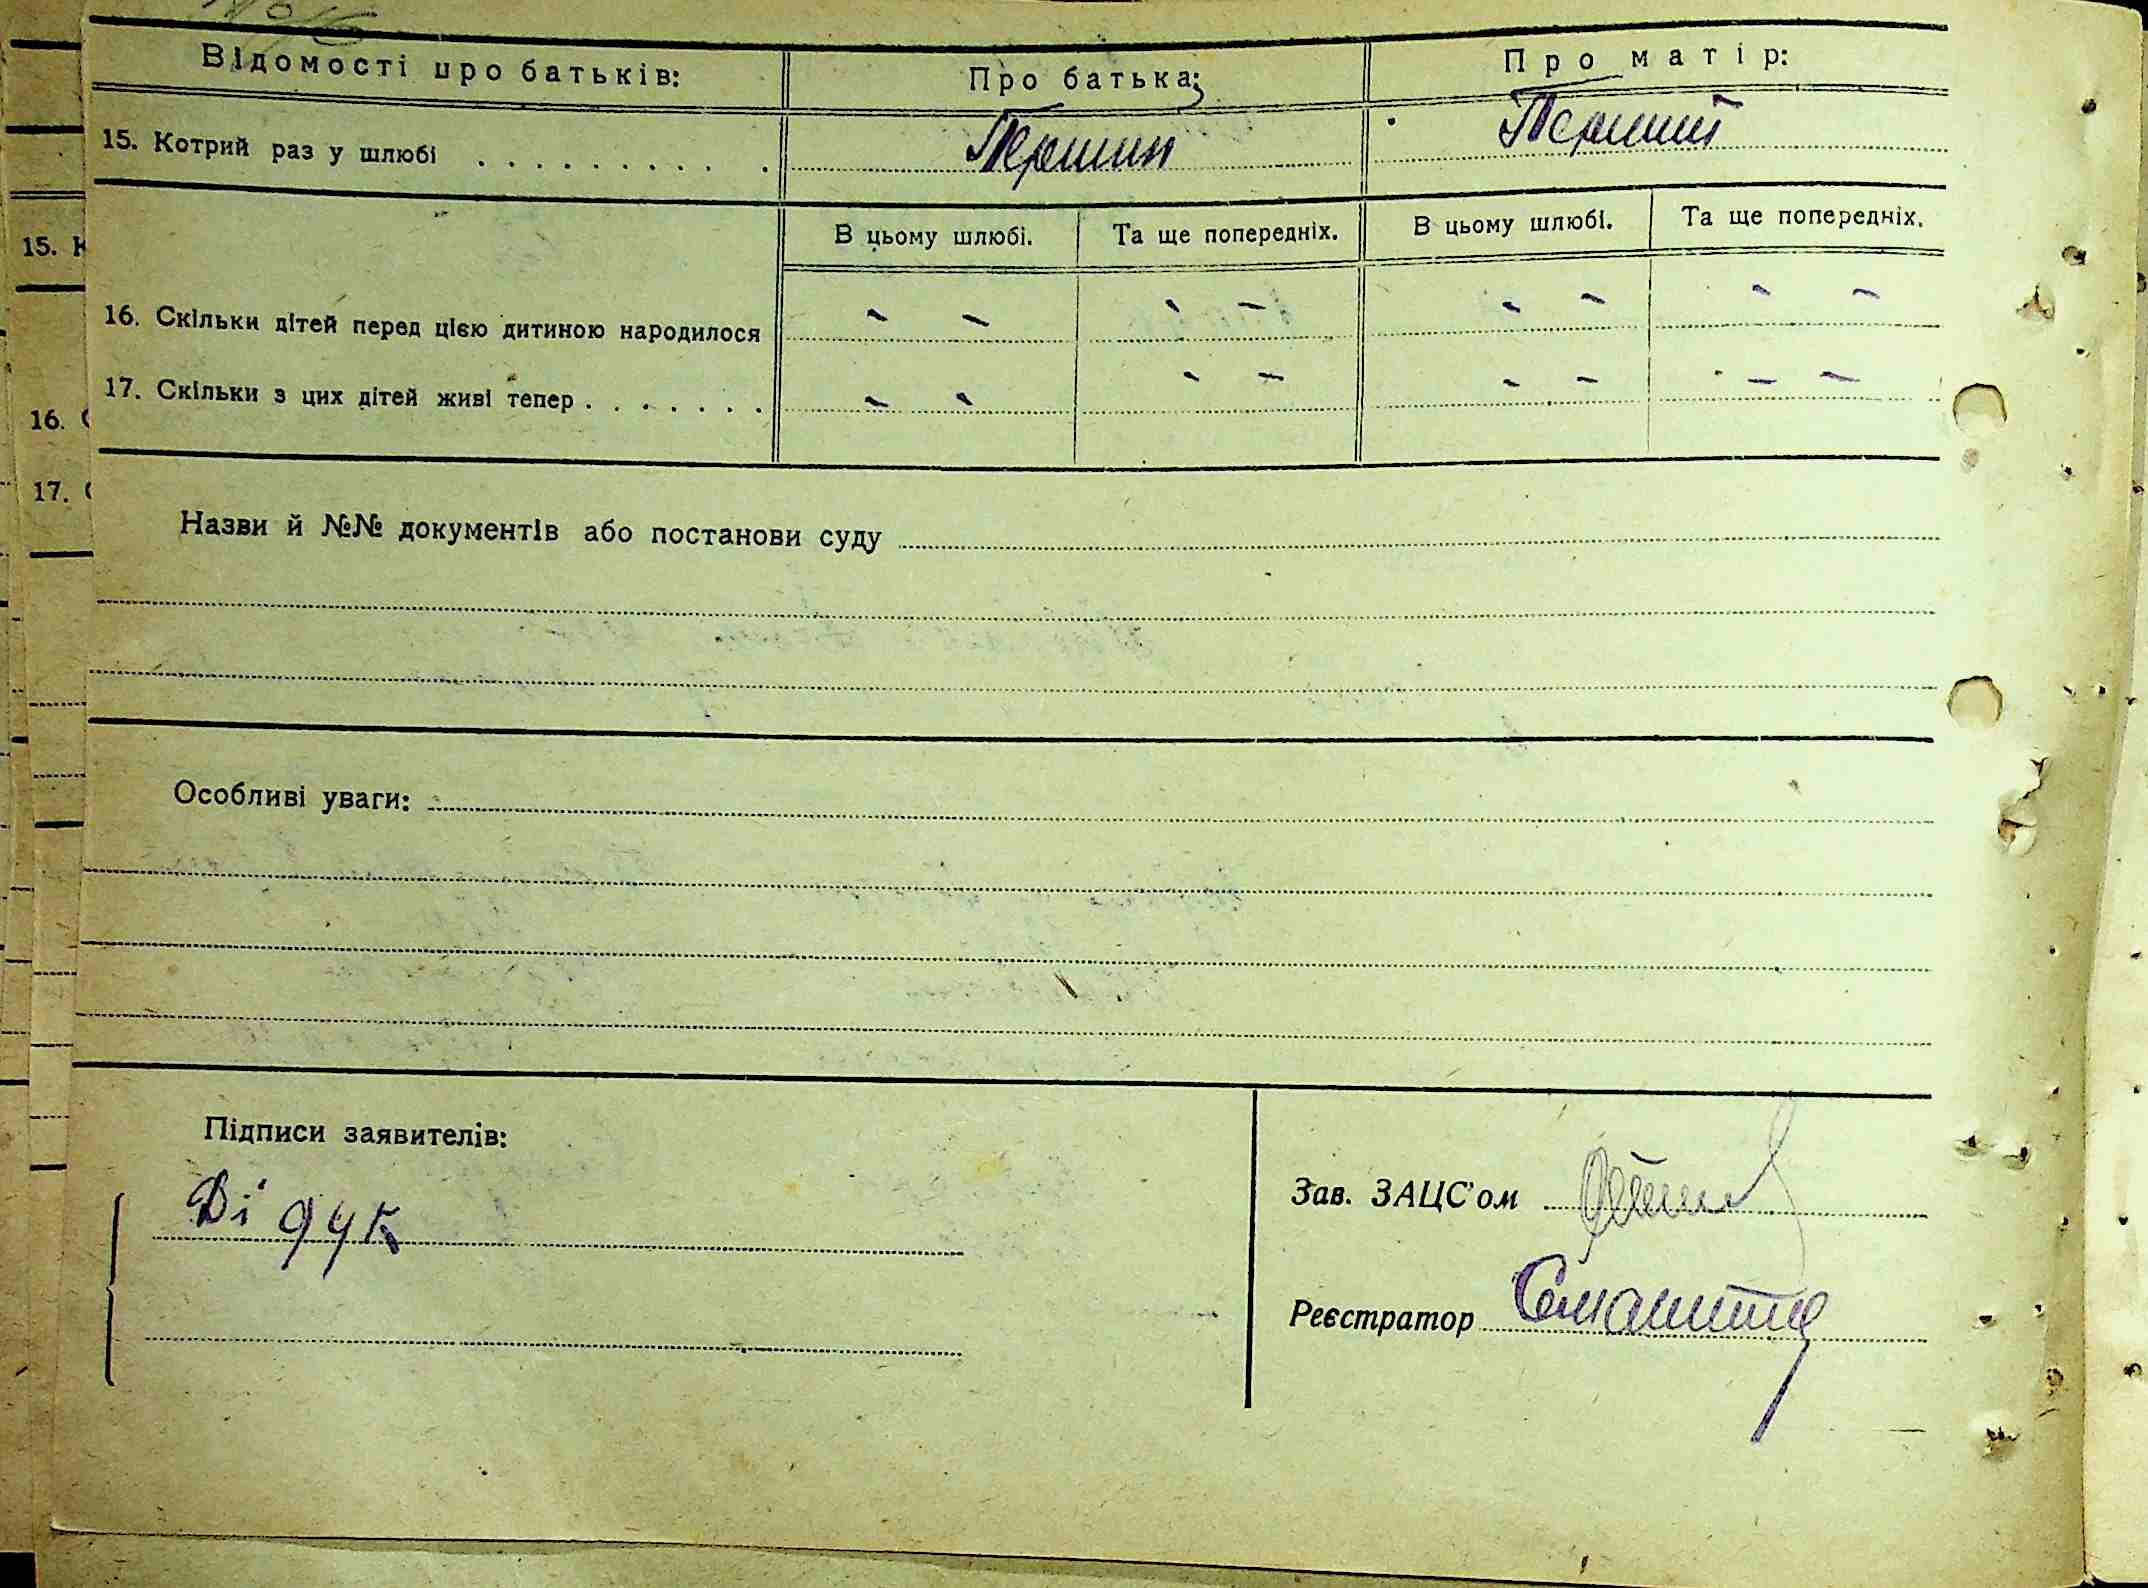 Відомості про батьків: Про батька: Про матір:
15. Котрий раз у шлюбі . . . . . . . . . . Перший Перший
В цьому шлюбі. Та ще попередніх. В цьому шлюбі. Та ще попередніх.
16. Скільки дітей перед цією дитиною народилося - - - - - - - -
17. Скільки з цих дітей живі тепер . . . . . . . - - - - - - - -
Назви й №№ документів або постанови суду
Особливі уваги:
Підписи заявителів:
Зав. ЗАЦС'ом
Реєстратор
15. К
16. С
17. С